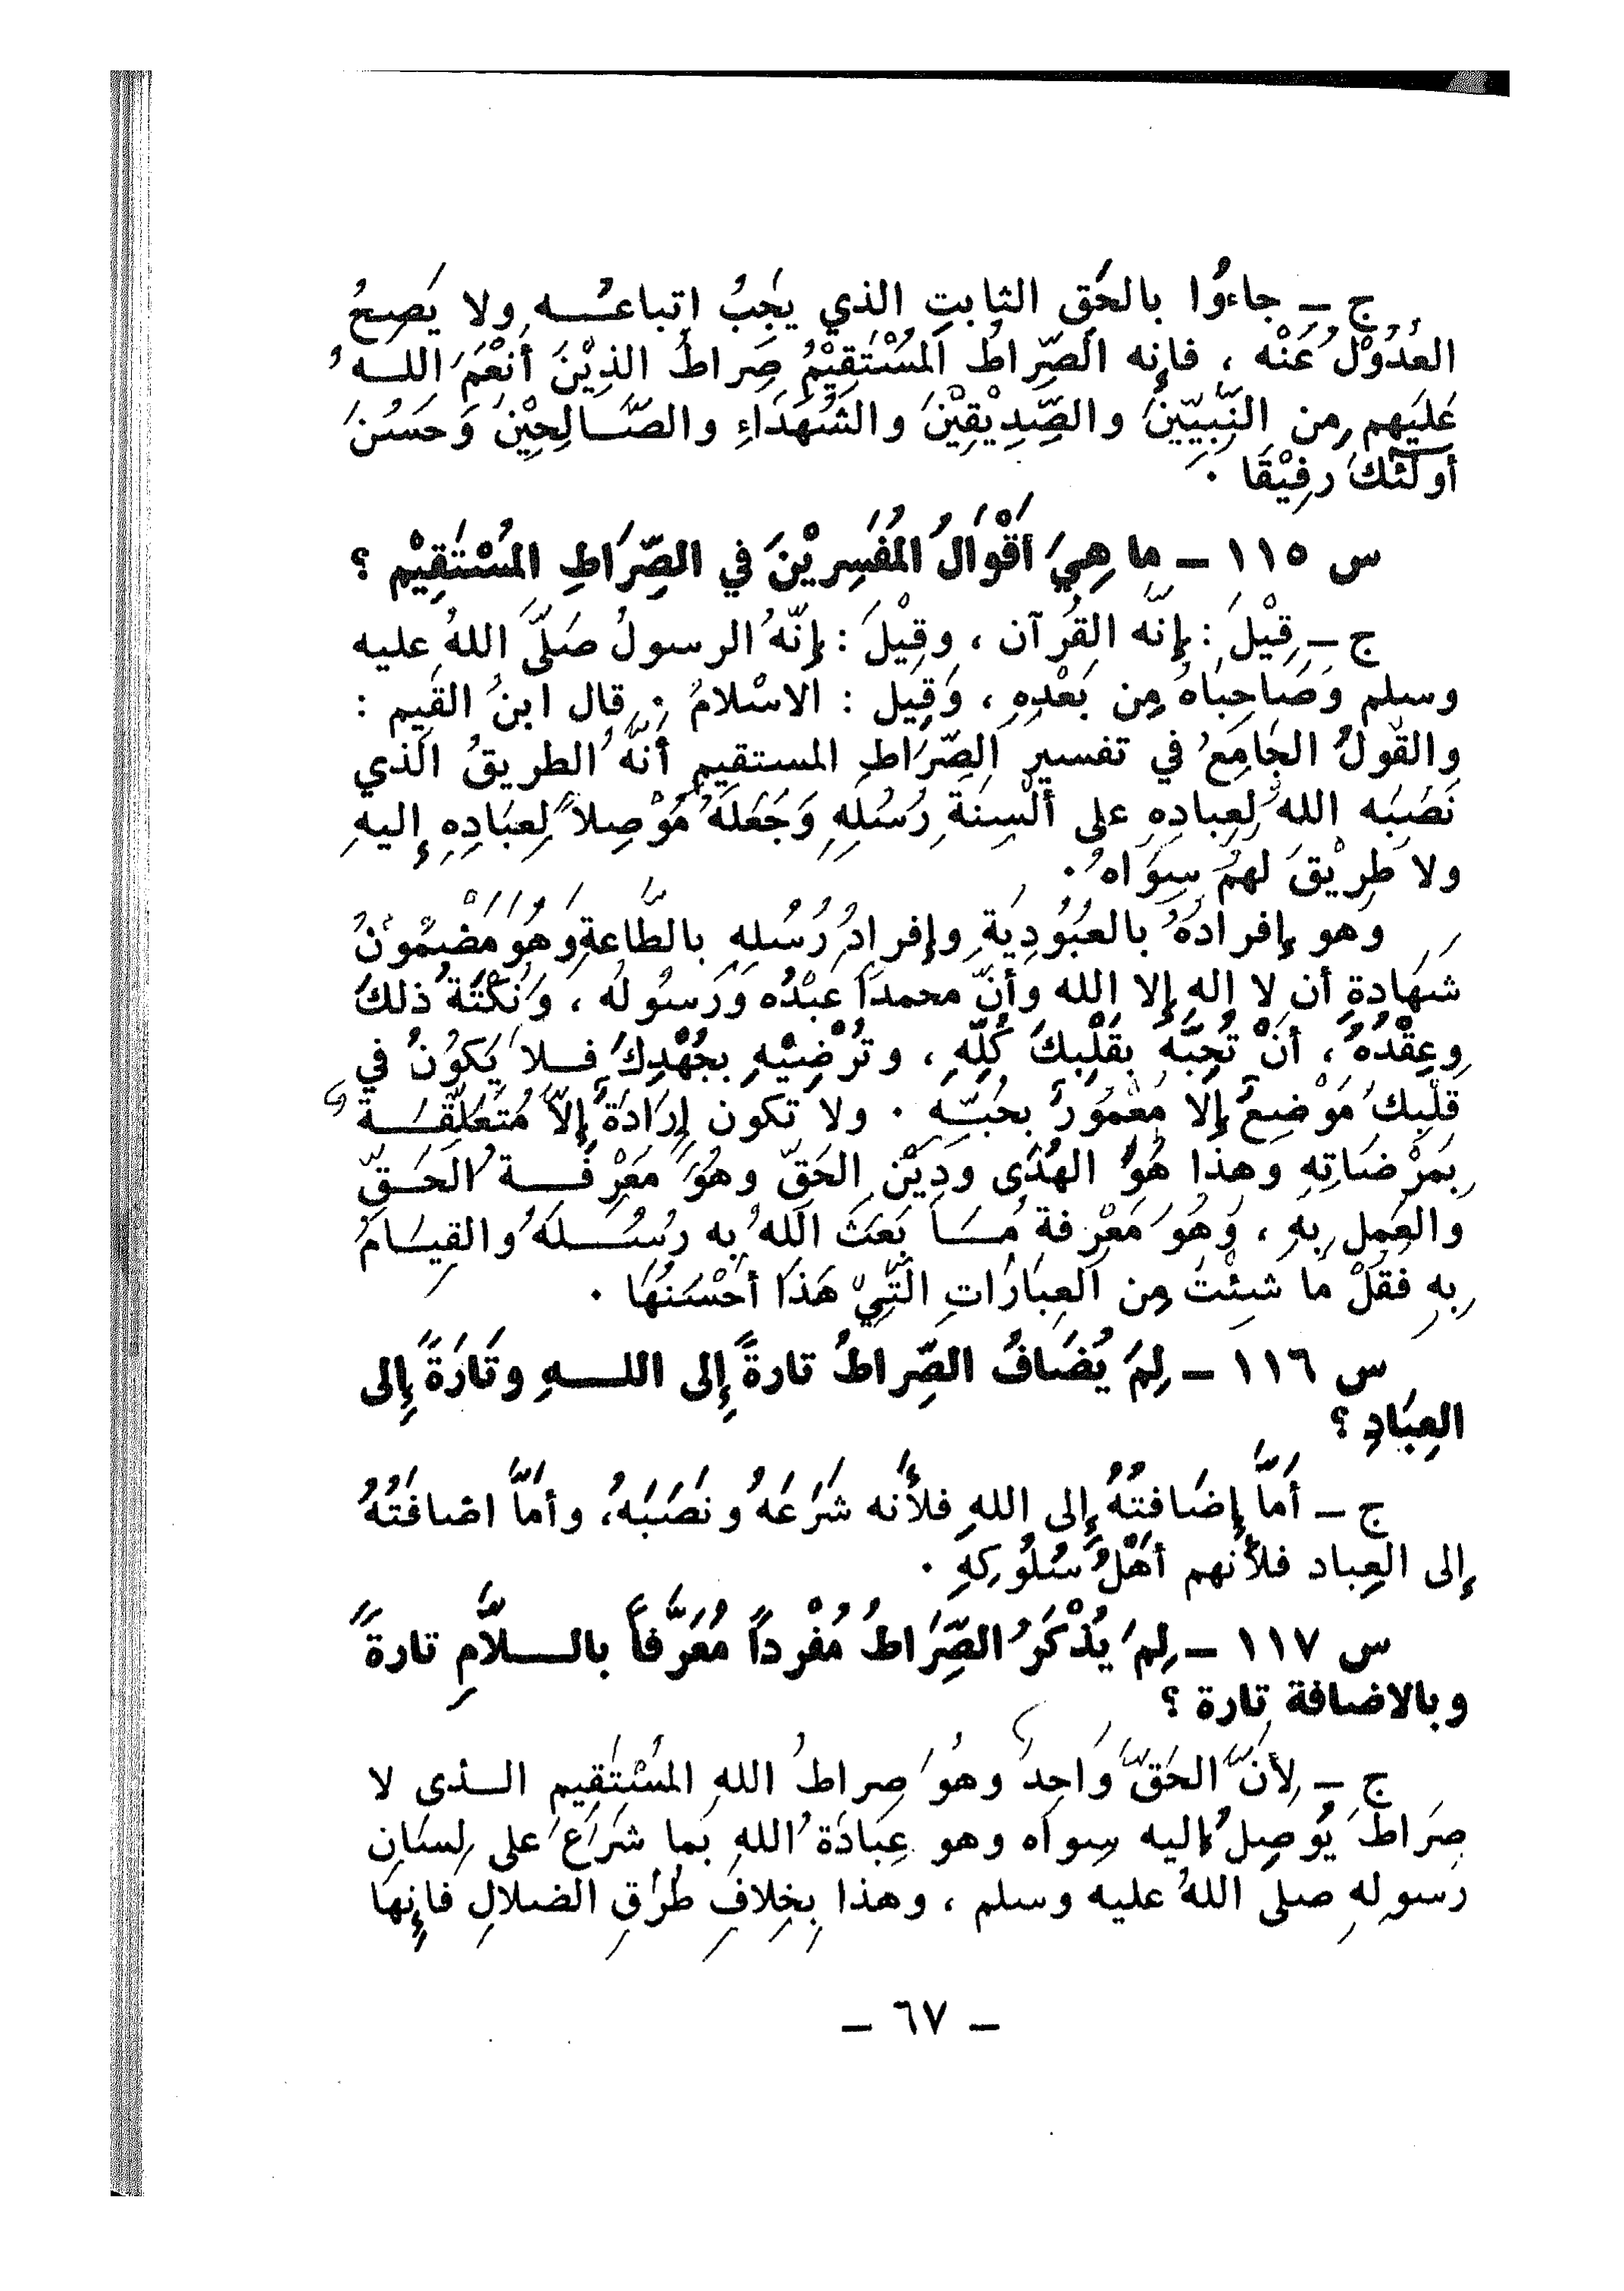 ج – جاءُوا بالحَقِ الثابتِ الذي يَجِبُ اتباعُـه ولا يَصِحُ
العُدُوْلُ عَنْه ، فإنه الصِّراطُ المُسْتَقِيْمُ صِراطُ الذِيْنَ أَنْعَمَ اللـهُ
عَلَيهِم مِن النَّبِيِّينَ والصِّدِيْقِيْنَ والشُهَدَاءِ والصَّـالِحِيْنَ وَحَسُنَ
أولئكَ رفِيْقَا .
س ١١٥ – ما هِيَ أَقْوَالُ المُفَسِرِيْنَ في الصِّرَاطِ المُسْتَقِيْم ؟
ج – قِيْلَ : إِنَّه القُرآن ، وقِيْلَ : إِنَّهُ الرسولُ صَلَّى اللهُ عليه
وسلم وَصَاحِبَاهُ مِن بَعْدِهِ ، وَقِيل : الاسْلامُ . قال ابنُ القَيِم :
والقَولُ الجَامِعُ في تفسيرِ الصِّرَاطِ المستقيمِ أَنَّهُ الطريقُ الذي
نَصَبَه اللهُ لِعِبادِهِ على أَلْسِنَةِ رُسُلِهِ وَجَعَلَهُ مُوْصِلاً لِعِبَادِهِ إليهِ
ولا طَرِيْقَ لهُم سِوَاهُ .
وهو إفرادُهُ بالعُبُودِيَةِ وإفرادُ رُسُلِهِ بالطَّاعةِ وَهُوَ مَضْمُونُ
شهَادةِ أن لا إله إلا الله وأنَّ محمداً عَبْدُه وَرَسُولُه ، وَنُكْتَةُ ذلكَ
وعِقْدُهُ ، أَنْ تُحِبَّهُ بِقَلْبِكَ كُلِّهِ ، وتُرْضِيْهِ بِجُهْدِكَ فـلا يَكوُنُ في
قَلْبِكَ مَوْضِعٌ إلا مَعْمُورٌ بِحُبِّهِ . ولا تكون إرَادَةٌ إلاَّ مُتَعَلِّقَـةٌ
بِمَرْضَاتِهِ وهذا هُوَ الهُدَى ودِيْنُ الحَقِّ وهُوَ مَعْرِفَـةُ الحَـقِّ
والعَمل بِهِ ، وَهُوَ مَعْرِفةُ مَـا بَعَثَ اللهُ بِه رُسُـلَهُ والقِيَـامُ
بِهِ فَقُلْ مَا شِئْتَ مِن العِبَارَاتِ الَّتِيْ هَذَا أَحْسَنُهَا .
س ١١٦ – لِمَ يُضَافُ الصِّراطُ تارةً إلى اللـهِ وتَارَةً إلى
العِبَادِ ؟
ج – أَمَّا إضَافتُهُ إلى اللهِ فلأنه شَرَعَهُ ونَصَبَهُ، وأَمَّا اضافَتُهُ
إلى العِباد فلأنهم أَهْلُ سُلُوكِهِ .
س ١١٧ – لِمَ يُذْكَرُ الصِّرَاطُ مُفْرداً مُعَرَّفاً بالـلاَّمِ تارةً
وبالاضافة تارة ؟
ج – لِأَنَّ الحَقَّ وَاحِدٌ وهُوَ صِراطُ اللهِ المُسْتَقِيم الـذي لا
صِرَاطَ يُوصِلُ إليه سِواه وهو عِبَادَةُ اللهِ بَما شَرَاعَ على لِسَانِ
رَسولِهِ صلى اللهُ عليه وسلم ، وهذا بِخِلافِ طُرُقِ الضلالِ فإنها
– ٦٧ –